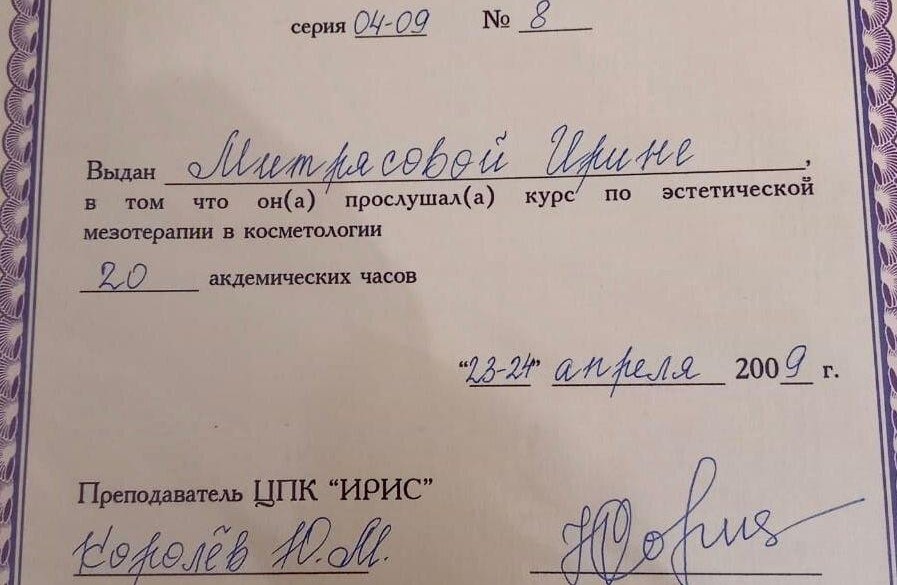 серия 04-09 № 8
Выдан Митрясовой Ирине,
в том что он(а) прослушал(а) курс по эстетической
мезотерапии в косметологии
20 акдемических часов
“23-24” апреля 2009 г.
Преподаватель ЦПК “ИРИС”
Королёв Ю.М.